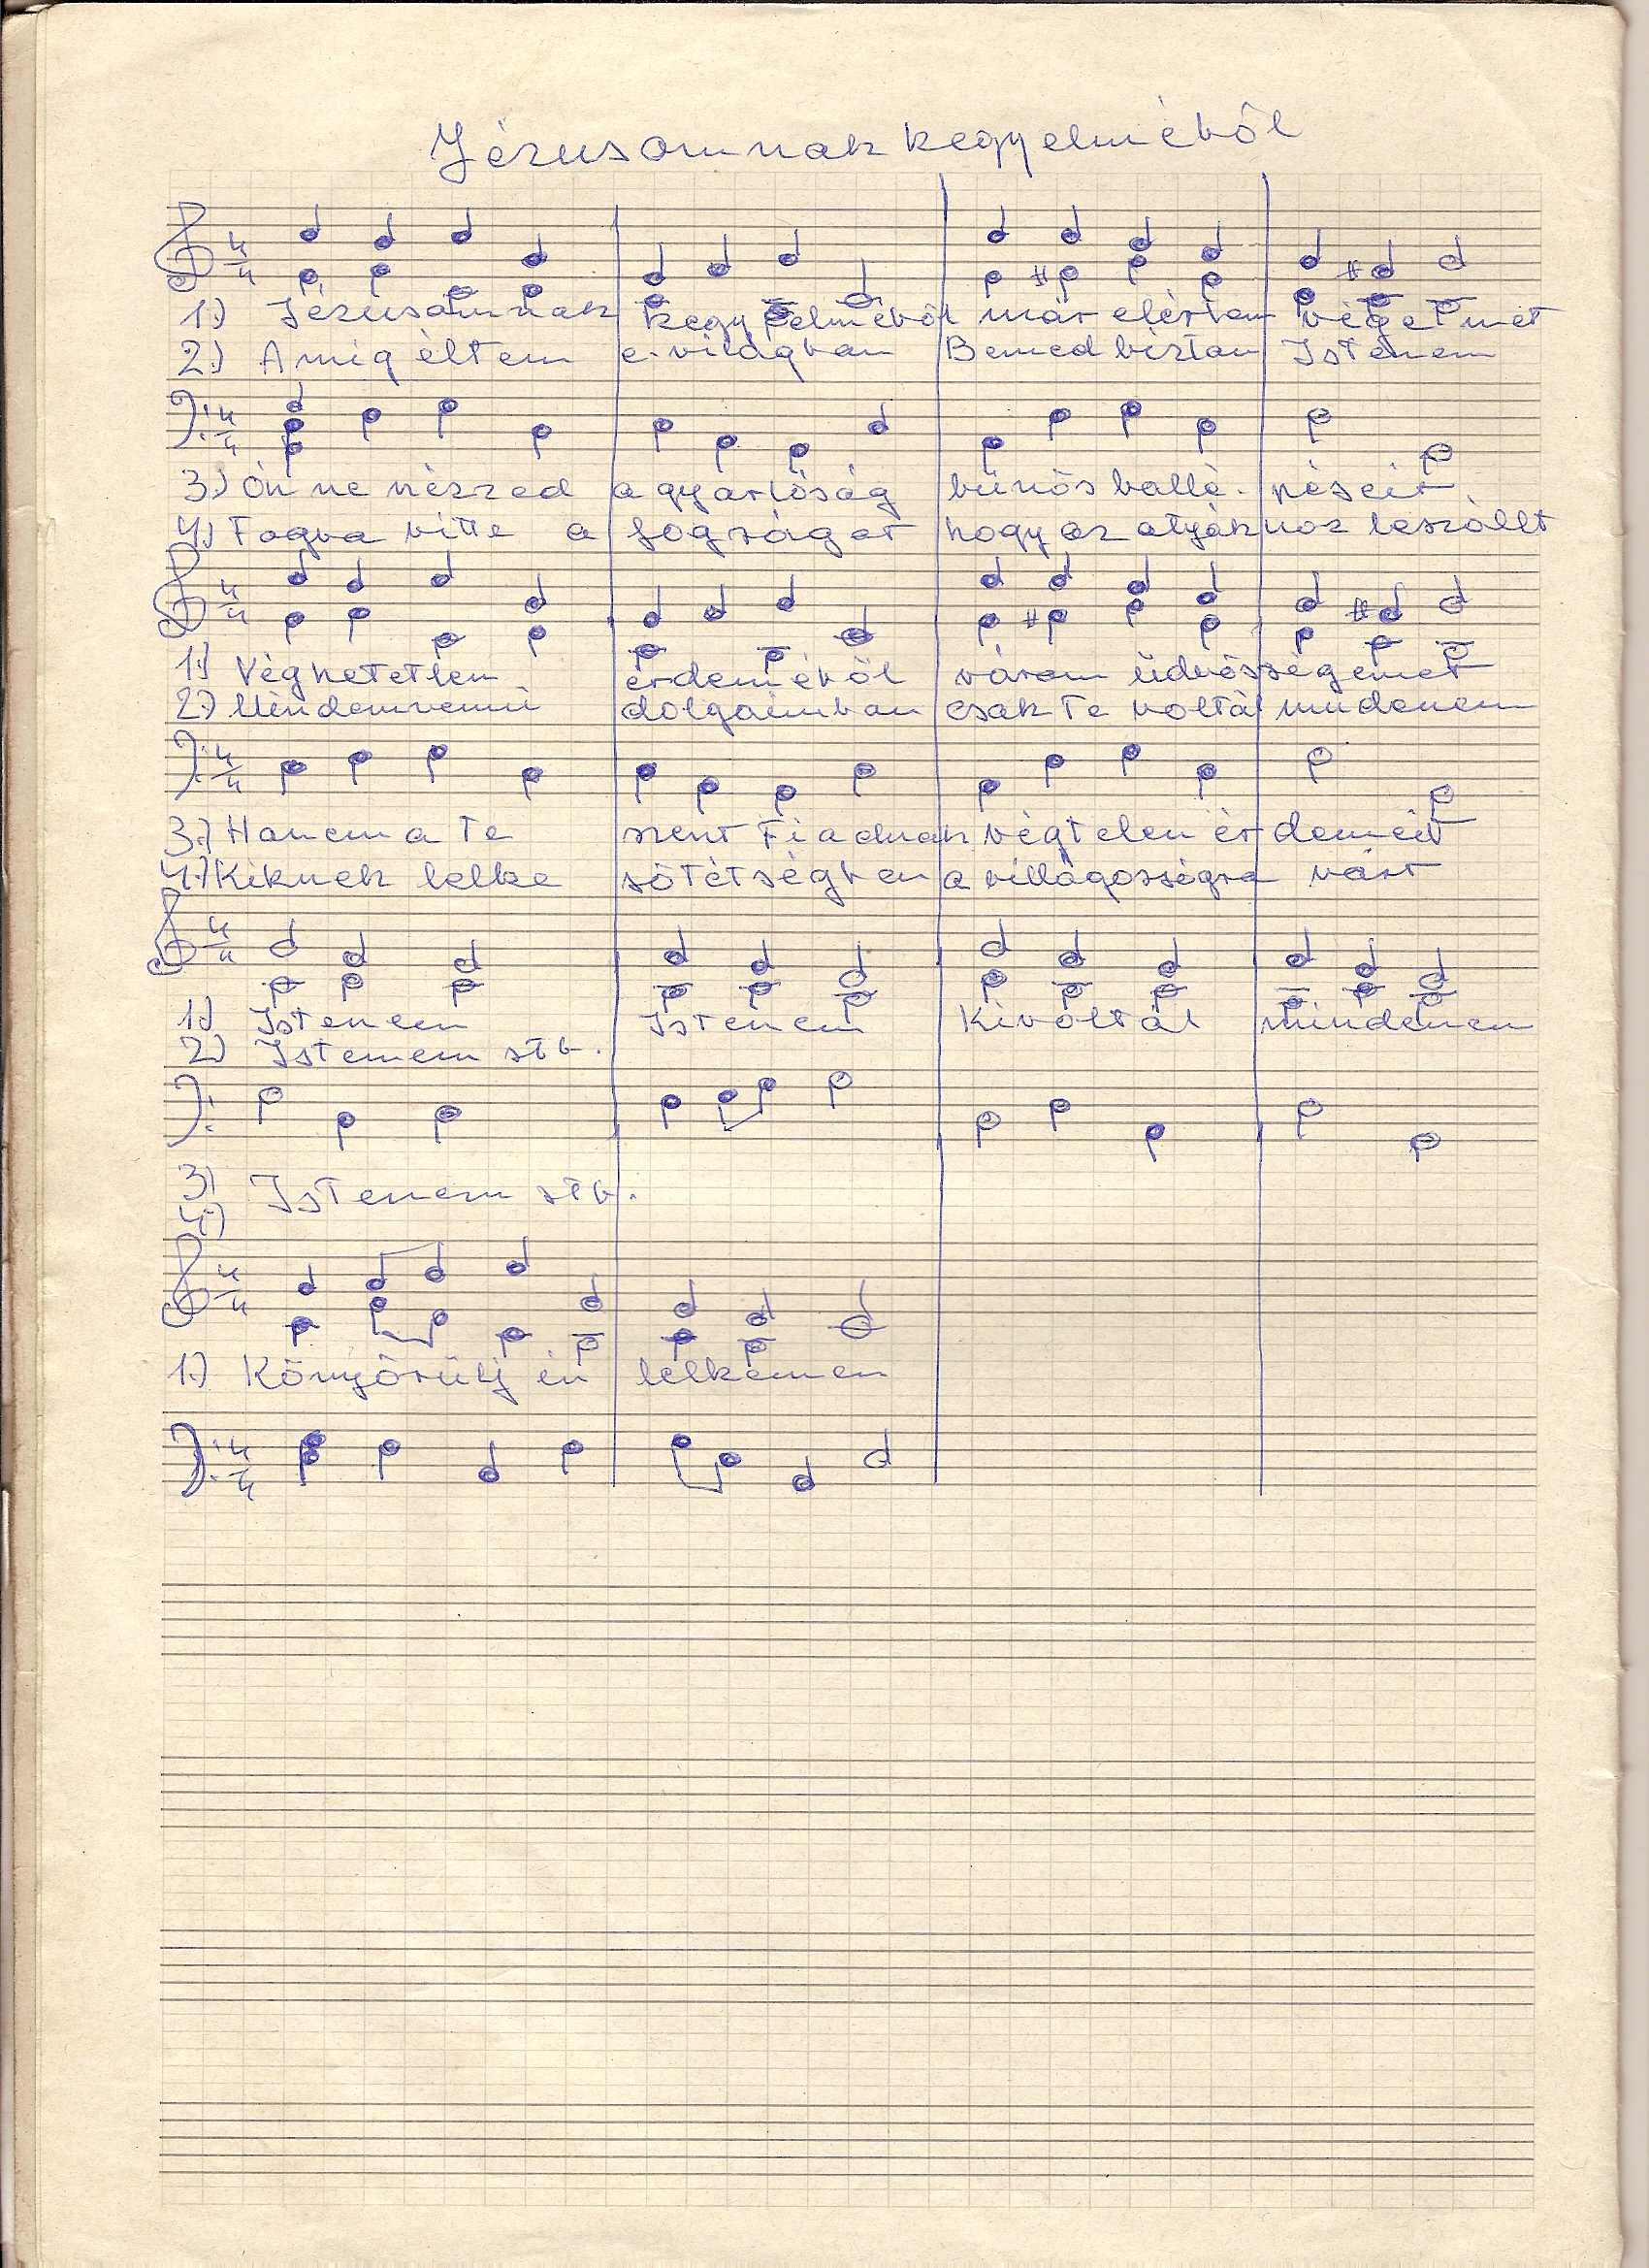 Jézusomnak kegyelméből
1.) Jézusomnak kegyelméből már elértem végemet
2.) Amig éltem e világban Bened bíztam Istenem
3.) Óh ne nézzed a gyarlóság bünös ballé. péseit.
4.) Fogva vitte a fogságot hogy az atyákhoz leszállt
1.) Véghetetlen érdeméből várom üdvösségemet
2.) dolgaimban csak Te voltál mindenem
3.) Hanem a Te szent Fiadnak végtelen érdemeit
4.) Kiknek lelke sötétségben a villágosságra várt
1.) Istenem Istenem Ki voltál mindenem
2.) Istenem stb.
3) Istenem stb.
4.)
1.) Könyörülj én lelkemen